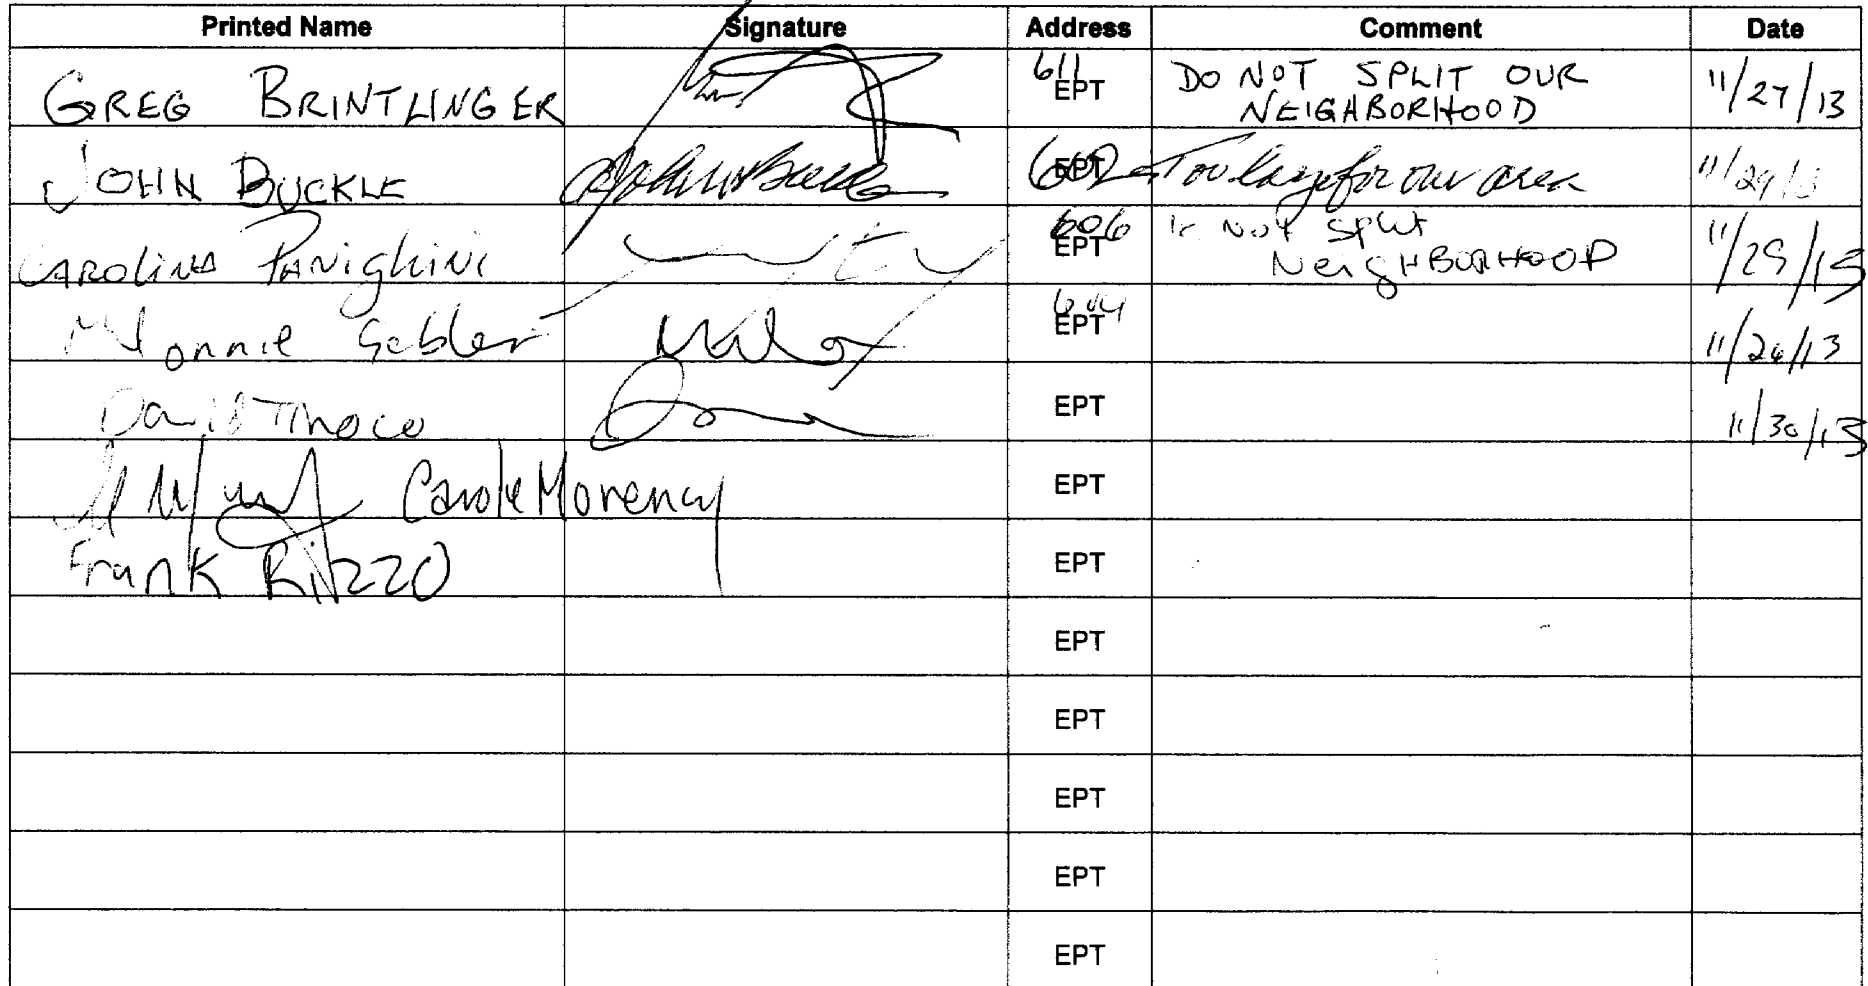 Printed Name Signature Address Comment Date
GREG BRINTLINGER 611 EPT DO NOT SPLIT OUR 11/27/13
NEIGHBORHOOD
JOHN BUCKLE John Buckle 602 EPT Too large for our area 11/29/13
CAROLINA PANIGHINI 606 EPT Not Split 11/29/13
NEIGHBORHOOD
Gebler EPT 11/26/13
David Tinoco EPT 11/30/13
Carole Morency EPT
Frank Rizzo EPT
EPT
EPT
EPT
EPT
EPT